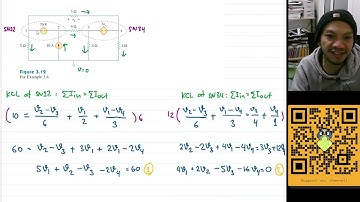 3 Ω
SN12
SN34
Figure 3.12
For Example 3.4.
V=0
KCL at SN12 : ΣIin = ΣIout
(10 = V2-V3/6 + V1/2 + V1-V4/3)6
60 = V2-V3 + 3V1 + 2V1-2V4
5V1 + V2 - V3 - 2V4 = 60 1
KCL at SN34 : ΣIin = ΣIout
12(V2-V3/6 + V1-V4/3 = V3/4 + V4/1)
2V2-2V3+4V1-4V4=3V3+12V4
4V1+2V2-5V3-16V4=0 2